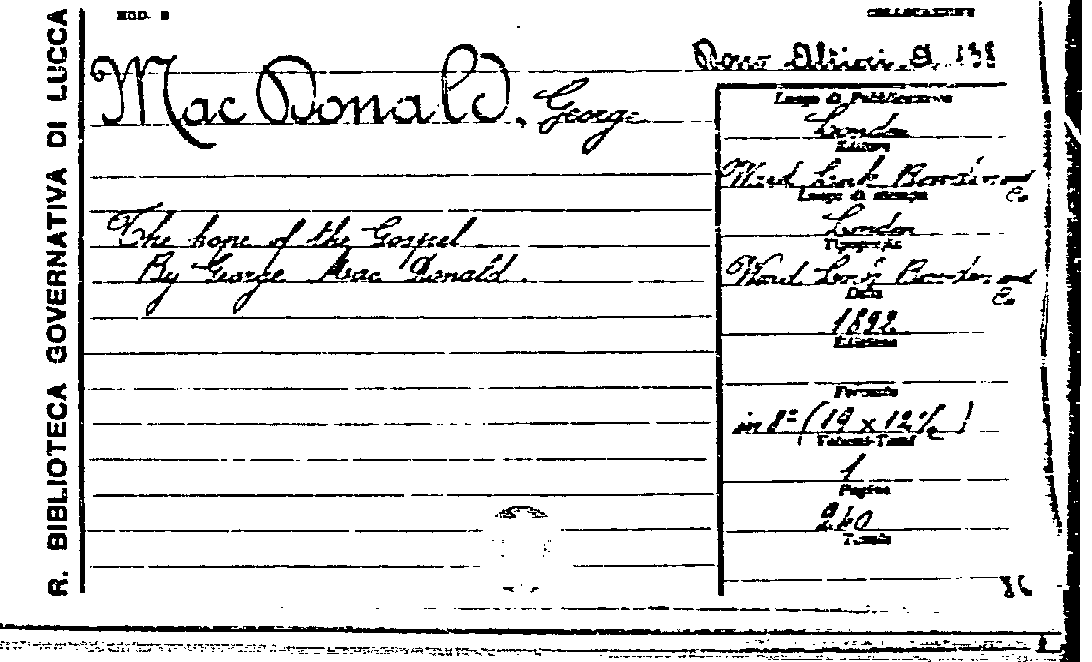 R. BIBLIOTECA GOVERNATIVA DI LUCCA
MOD. B
COLLOCAZIONE
Dono Altini. A. 138
MacDonald, George
Luogo di Pubblicazione
London
Editore
Ward Lock Bowden and Co
Luogo di stampa
London
Tipografia
Ward Lock Bowden and Co
Data
1892
Edizione
Formato
in 8º (19 x 12½)
Volumi-Tomi
1
Pagine
Tavole
The hope of the Gospel
By George Mac Donald.
86